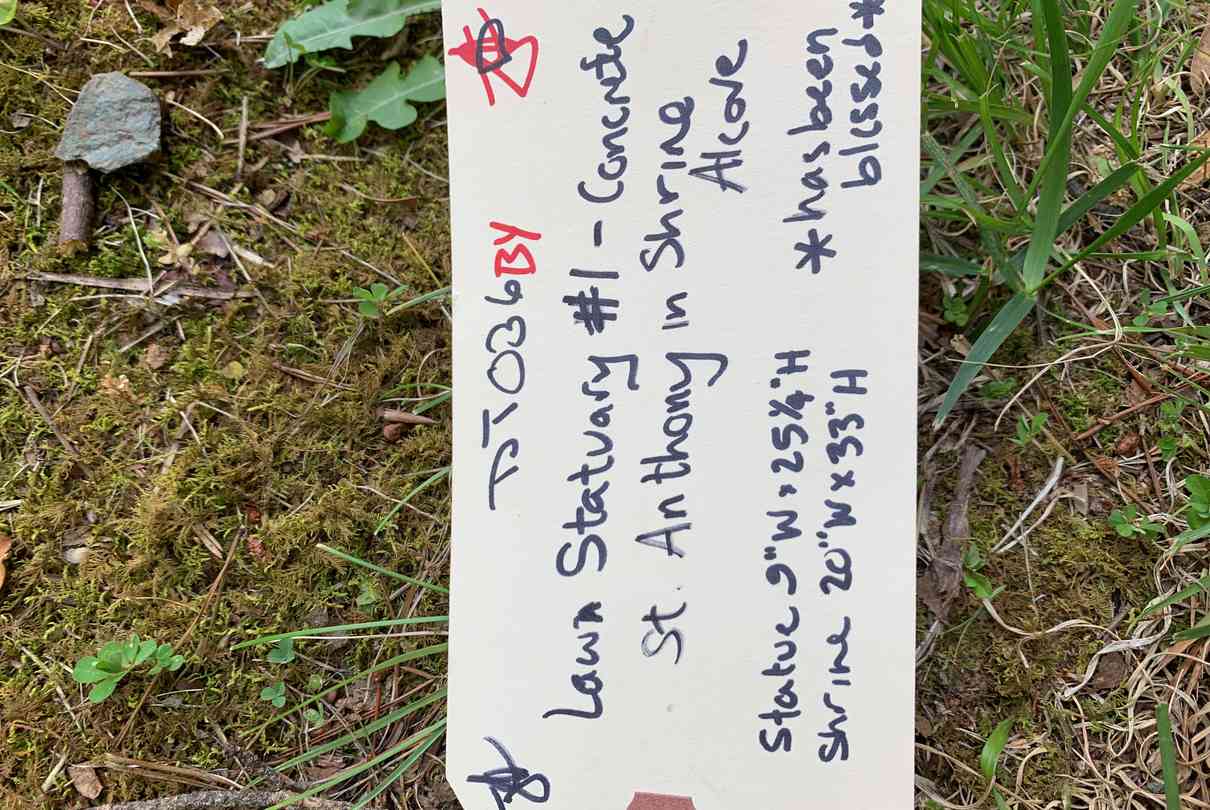 TJ1036BY
Lawn Statuary #1 - Concrete
St. Anthony in Shrine
Alcove
Statue 9"W x 25¼"H
Shrine 20"W x 33"H
*has been
blessed*